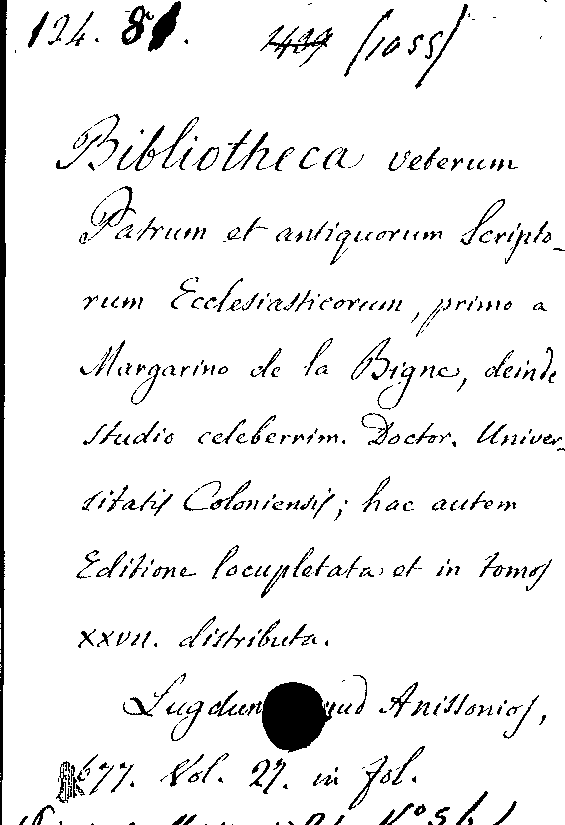 124. 81. 1439 (1055)
Bibliotheca veterum
Patrum et antiquorum Scripto-
rum Ecclesiasticorum, primo a
Margarino de la Bigne, deinde
studio celeberrim. Doctor. Univer-
sitatis Coloniensis; hac autem
Editione locupletata et in tomos
XXVII. distributa.
Lugdun apud Anissonios,
1677. Vol. 27. in fol.